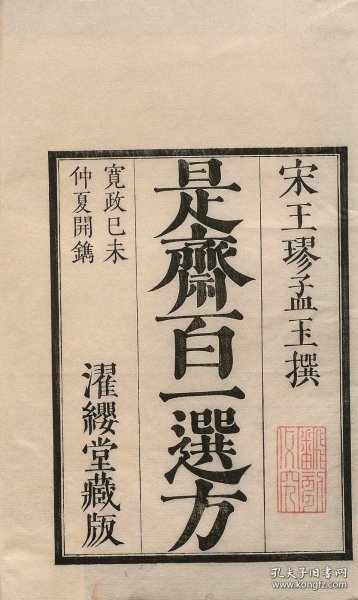 宋王璆孟玉撰
是齋百一選方
寛政己未
仲夏開鐫
濯纓堂藏版
孔夫子旧书网
www.kongfz.com